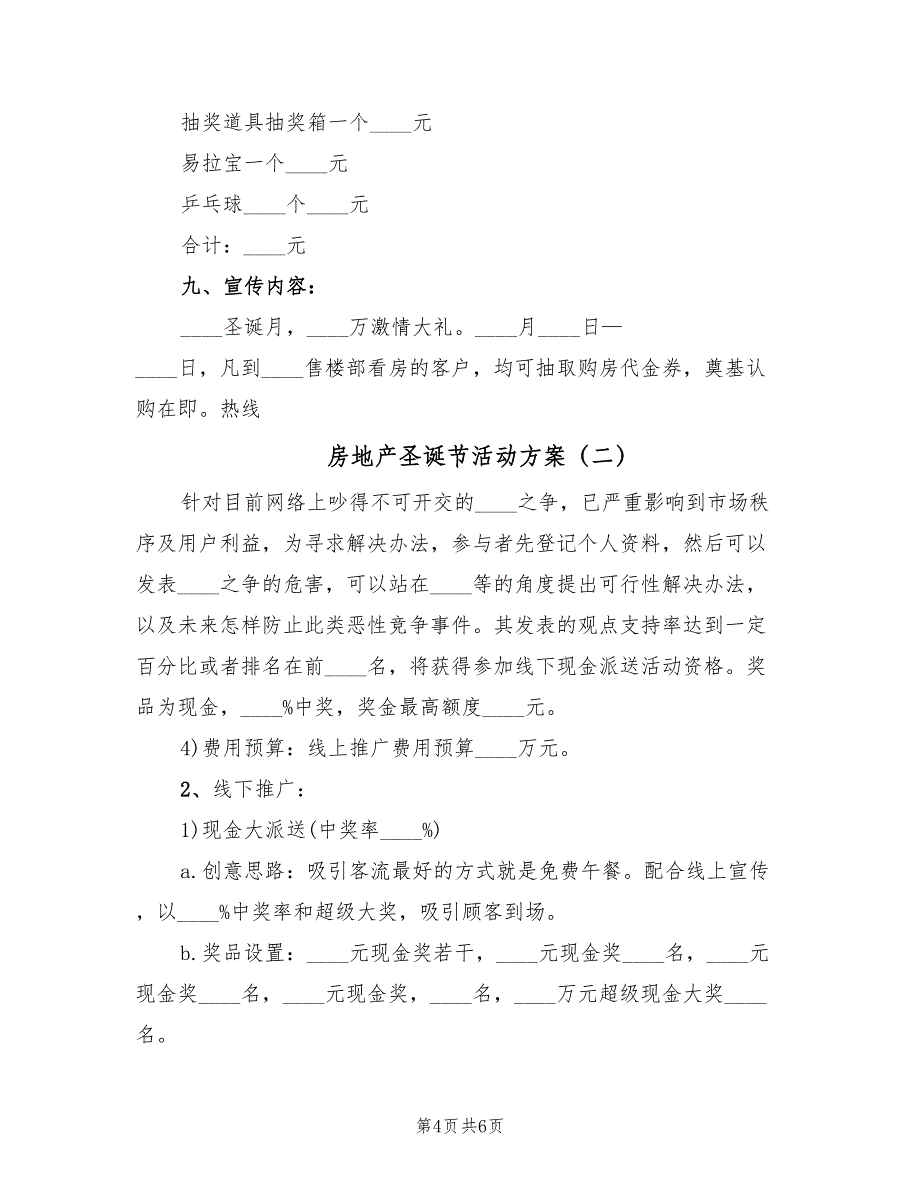 抽奖道具抽奖箱一个____元
易拉宝一个____元
乒乓球____个____元
合计：____元
九、宣传内容：
____圣诞月，____万激情大礼。____月____日—
____日，凡到____售楼部看房的客户，均可抽取购房代金券，奠基认
购在即。热线
房地产圣诞节活动方案（二）
针对目前网络上吵得不可开交的____之争，已严重影响到市场秩
序及用户利益，为寻求解决办法，参与者先登记个人资料，然后可以
发表____之争的危害，可以站在____等的角度提出可行性解决办法，
以及未来怎样防止此类恶性竞争事件。其发表的观点支持率达到一定
百分比或者排名在前____名，将获得参加线下现金派送活动资格。奖
品为现金，____%中奖，奖金最高额度____元。
4)费用预算：线上推广费用预算____万元。
2、线下推广：
1)现金大派送(中奖率____%)
a.创意思路：吸引客流最好的方式就是免费午餐。配合线上宣传
，以____%中奖率和超级大奖，吸引顾客到场。
b.奖品设置：____元现金奖若干，____元现金奖____名，____元
现金奖____名，____元现金奖，____名，____万元超级现金大奖____
名。
第4页共6页